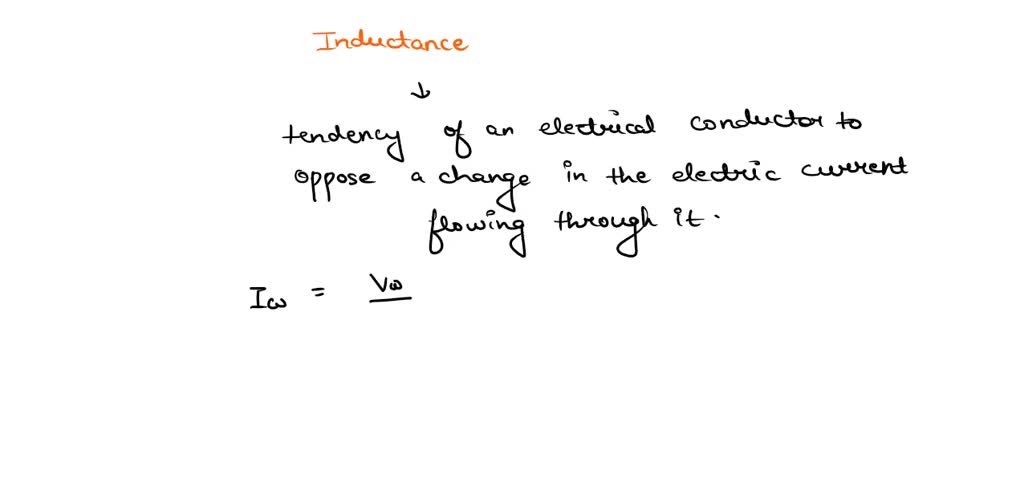 Inductance
↓
tendency of an electrical conductor to
oppose a change in the electric current
flowing through it.
Iω = Vω